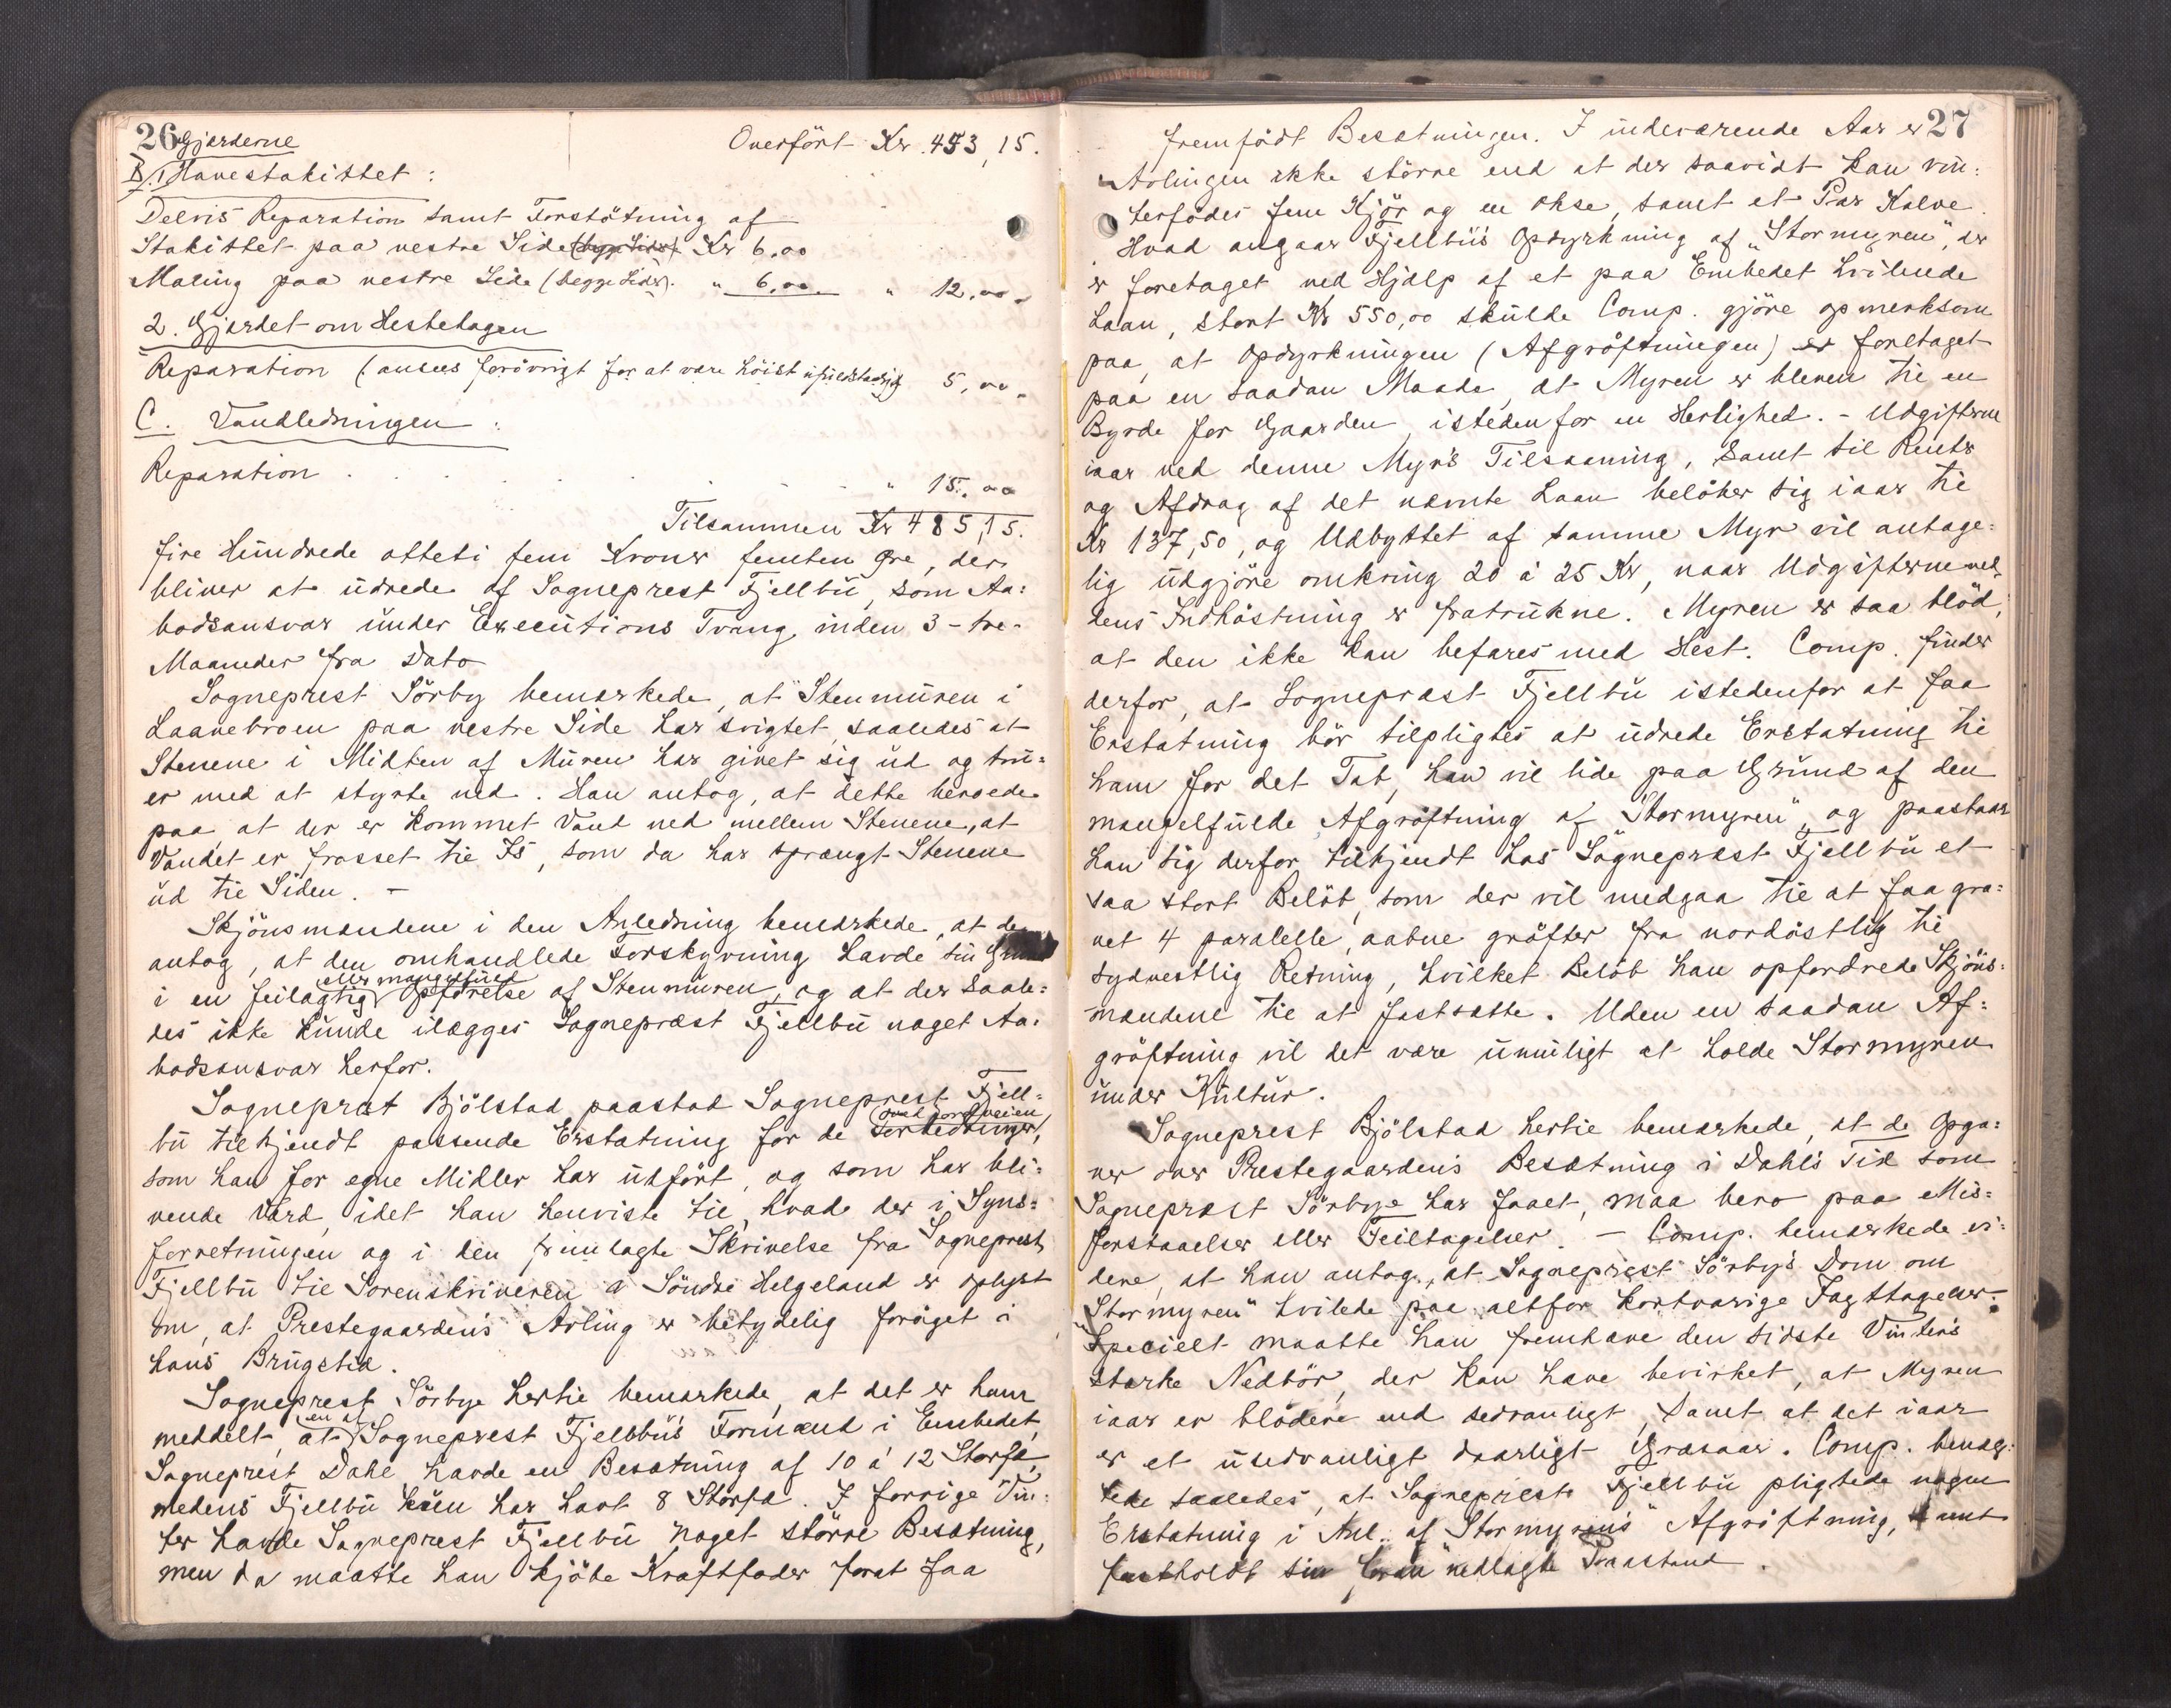 26
Gjærderne
Overført Kr. 453,15.
B. 1 Havestakittet:
Delvis Reparation samt Forstøtning af
Stakittet paa vestre Side (begge Sider) Kr 6.00
Maling paa vestre Side (begge Sider). " 6.00. " 12,00.
2. Gjærdet om Hestehagen
Reparation (ansees forøvrigt for at være høist ufuldstændig) 5,00.
C. Vandledningen:
Reparation . . . . . . " 15.00
Tilsammen Kr 485,15.
fire Hundrede otteti fem Kroner femten Øre, der
bliver at udrede af Sogneprest Fjellbu, som Aa=
bodsansvar under Executions Tvang inden 3 - tre -
Maaneder fra Dato
Sogneprest Sörby bemærkede, at Stenmuren i
Laavebroen paa vestre Side har svigtet, saaledes at
Stenene i Midten af Muren har givet sig ud og tru=
er med at styrte ned. Han antog, at dette beroede
paa, at der er kommet Vand ned mellem Stenene, at
Vandet er frosset til Is, som da har sprængt Stenene
ud til Siden. -
Skjönsmændene i den Anledning bemærkede, at de
antog, at den omhandlede Forskyvning havde sin Grund
i en feilagtig eller mangelfuld Opførelse af Stenmuren, og at der saale=
des ikke kunde ilægges Sogneprest Fjellbu noget Aa=
bodsansvar herfor.
Sogneprest Bjölstad paastod Sogneprest Fjell=
bu tilkjendt passende Erstatning for de Forbedringer,
som han for egne Midler har udført, og som har bli=
vende Værd, idet han henviste til, hvad der i Syns=
forretningen og i den fremlagte Skrivelse fra Sogneprest
Fjellbu til Sorenskriveren i Söndre Helgeland er oplyst
om, at Prestegaardens Avling er betydelig forøget i
hans Brugstid.
Sogneprest Sörbye hertil bemærkede, at det er ham
meddelt, at en af Sogneprest Fjellbu's Formænd i Embedet,
Sogneprest Dahl havde en Besætning af 10 à 12 Storfæ,
medens Fjellbu kun har havt 8 Storfæ. I forrige Vin=
ter havde Sogneprest Fjellbu noget større Besætning,
men da maatte han kjöbe Kraftfoder forat faa
27
fremfødt Besætningen. I indeværende Aar er
Avlingen ikke större end at der saavidt kan vin=
terfødes fem Kjör og en Okse, samt et Par Kalve.
Hvad angaar Fjellbu's Opdyrkning af "Stormyren", der
er foretaget ved Hjælp af et paa Embedet hvilende
Laan, stort Kr 550,00 skulde Comp. gjöre opmerksom
paa, at Opdyrkningen (Afgröftningen) er foretaget
paa en saadan Maade, at Myren er bleven til en
Byrde for Gaarden, istedenfor en Herlighed. - Udgifterne
iaar ved denne Myr's Tilsaaning, samt til Renter
og Afdrag af det nævnte Laan belöber sig iaar til
Kr 137,50, og Udbyttet af samme Myr vil antage=
lig udgjöre omkring 20 à 25 Kr, naar Udgifterne ved
dens Indhöstning er fratrukne. Myren er saa blöd,
at den ikke kan befares med Hest. Comp. finder
derfor, at Sogneprest Fjellbu istedenfor at faa
Erstatning bör tilpligtes at udrede Erstatning til
ham for det Tab, han vil lide paa Grund af den
mangelfulde Afgröftning af "Stormyren", og paastaar
han sig derfor tilkjendt hos Sogneprest Fjellbu et
saa stort Belöb, som der vil medgaa til at faa gra=
vet 4 paralelle, aabne gröfter fra nordöstlig til
sydvestlig Retning, hvilket Belöb han opfordrede Skjöns=
mændene til at fastsætte. Uden en saadan Af=
gröftning vil det være umuligt at holde Stormyren
under Kultur.
Sogneprest Bjölstad hertil bemærkede, at de Opga=
ver over Prestegaardens Besætning i Dahl's Tid som
Sogneprest Sörbye har faaet, maa bero paa Mis=
forstaaelser eller Feiltagelser. - Comp. bemærkede vi=
dere, at han antog, at Sogneprest Sörby's Dom om
"Stormyren" hvilede paa altfor kortvarige Iagttagelser.
Specielt maatte han fremhæve den sidste Vinters
stærke Nedbör, der kan have bevirket, at Myren
iaar er blödere end sedvanligt, samt at det iaar
er et usedvanligt daarligt Græsaar. Comp. benæg=
tede saaledes, at Sogneprest Fjellbu pligtede nogen
Erstatning i Anl. af "Stormyrens" Afgröftning, samt
fastholdt sin foran nedlagte Paastand.